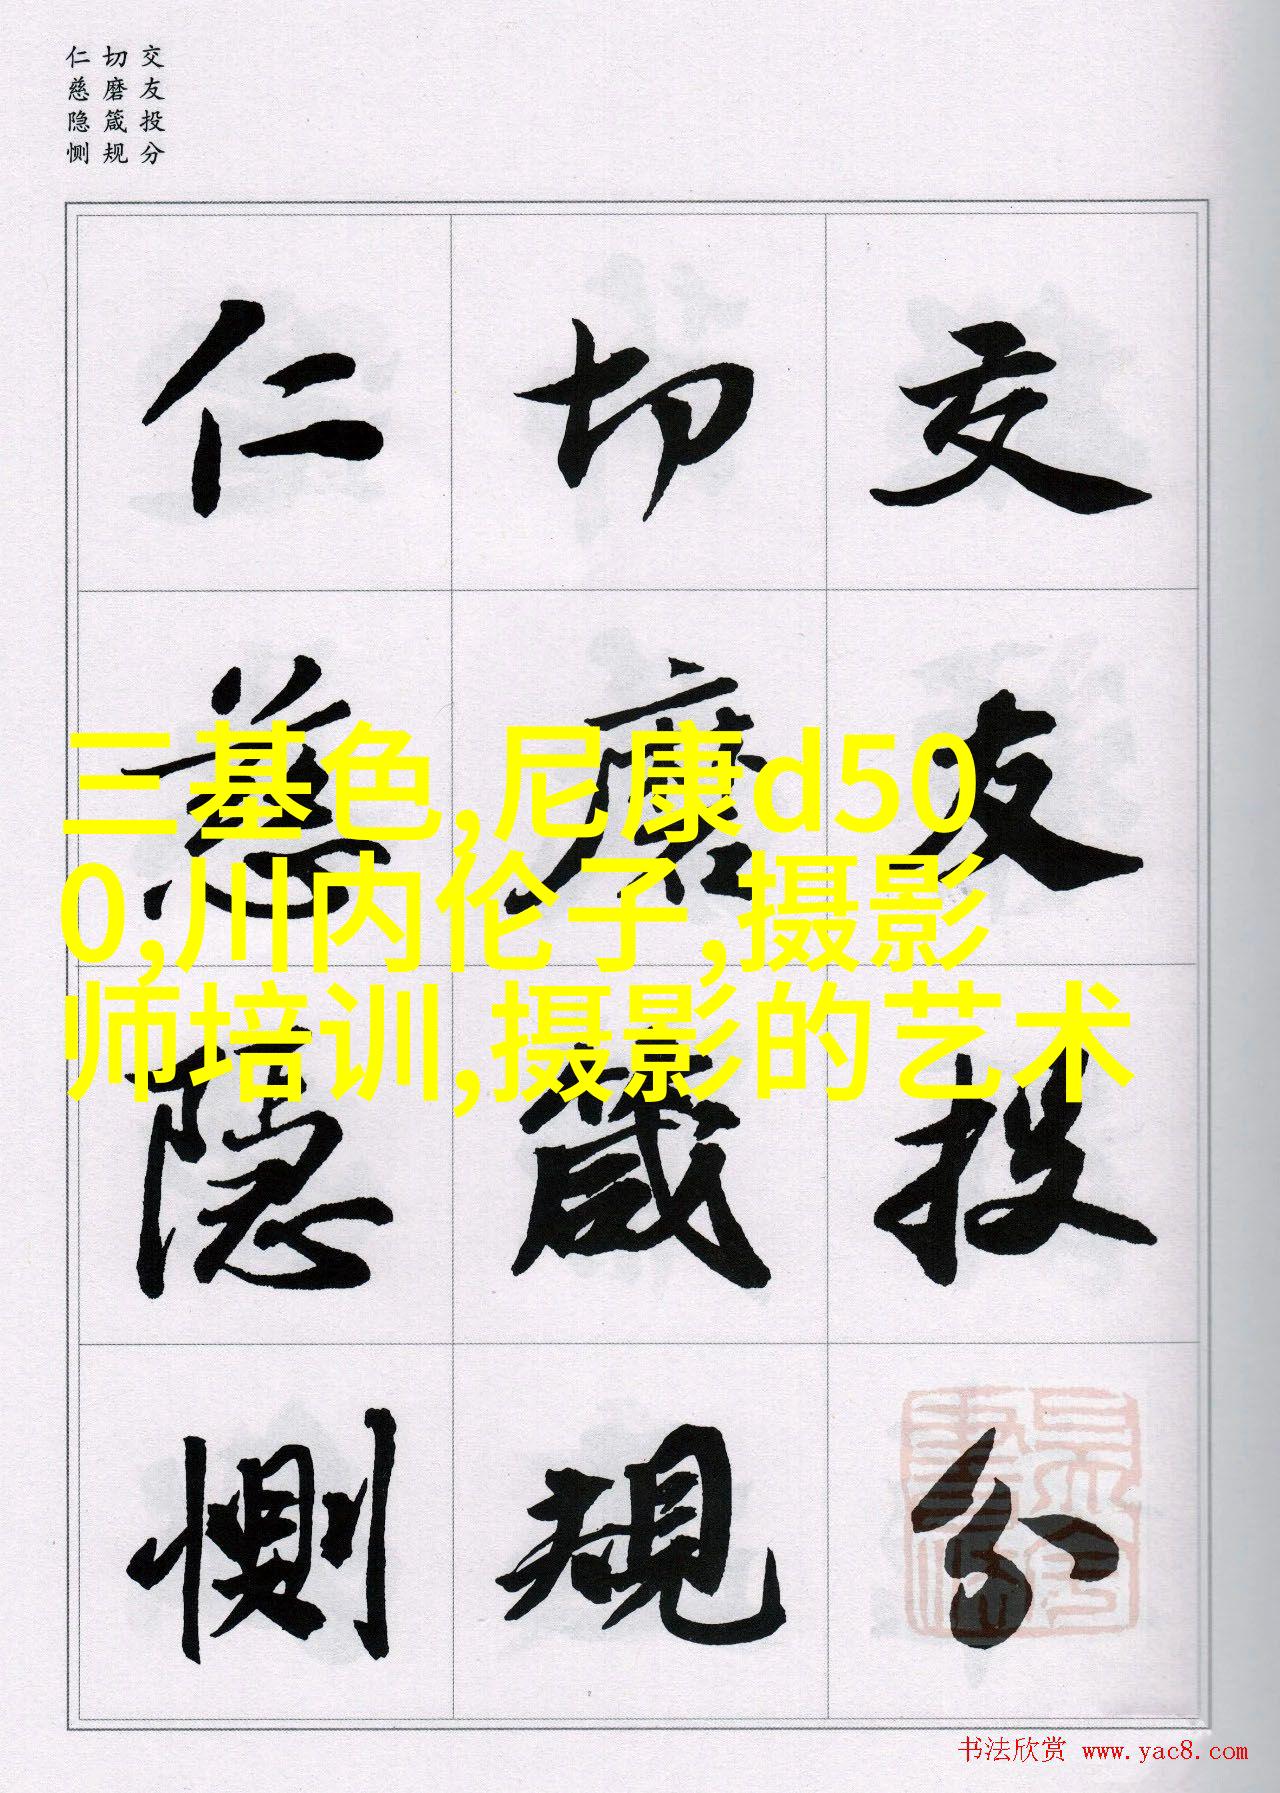 交友投分
切磨箴规
仁慈隐恻
交友投分
切磨箴規
仁慈隐恻
三基色,尼康d50
0,川内伦子,摄影
师培训,摄影的艺术
书法欣赏 www.yac8.com